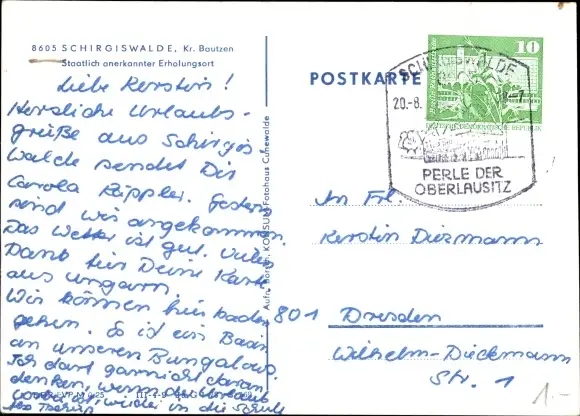 8605 SCHIRGISWALDE, Kr. Bautzen
Staatlich anerkannter Erholungsort
Liebe Kerstin!
Herzliche Urlaubs-
grüße aus Schirgis
walde sendet Dir
Carola Rüppler. Gestern
sind wir angekommen.
Das Wetter ist gut. Vielen
Dank für Deine Karte
aus Ungarn.
Wir können hier baden
gehen. Es ist ein Bad
an unseren Bungalows.
Ich darf garnicht daran
denken, wenn der Urlaub
vorbei ist, wieder in die Schule
Aufn. Borsch, KONSUM Fotohaus Cunewalde
POSTKARTE
10
DEUTSCHE DEMOKRATISCHE REPUBLIK
SCHIRGISWALDE
20.-8.
PERLE DER
OBERLAUSITZ
An Frl.
Kerstin Dizmann
801 Dresden
Wilhelm-Dieckmann
Str. 1
1.-